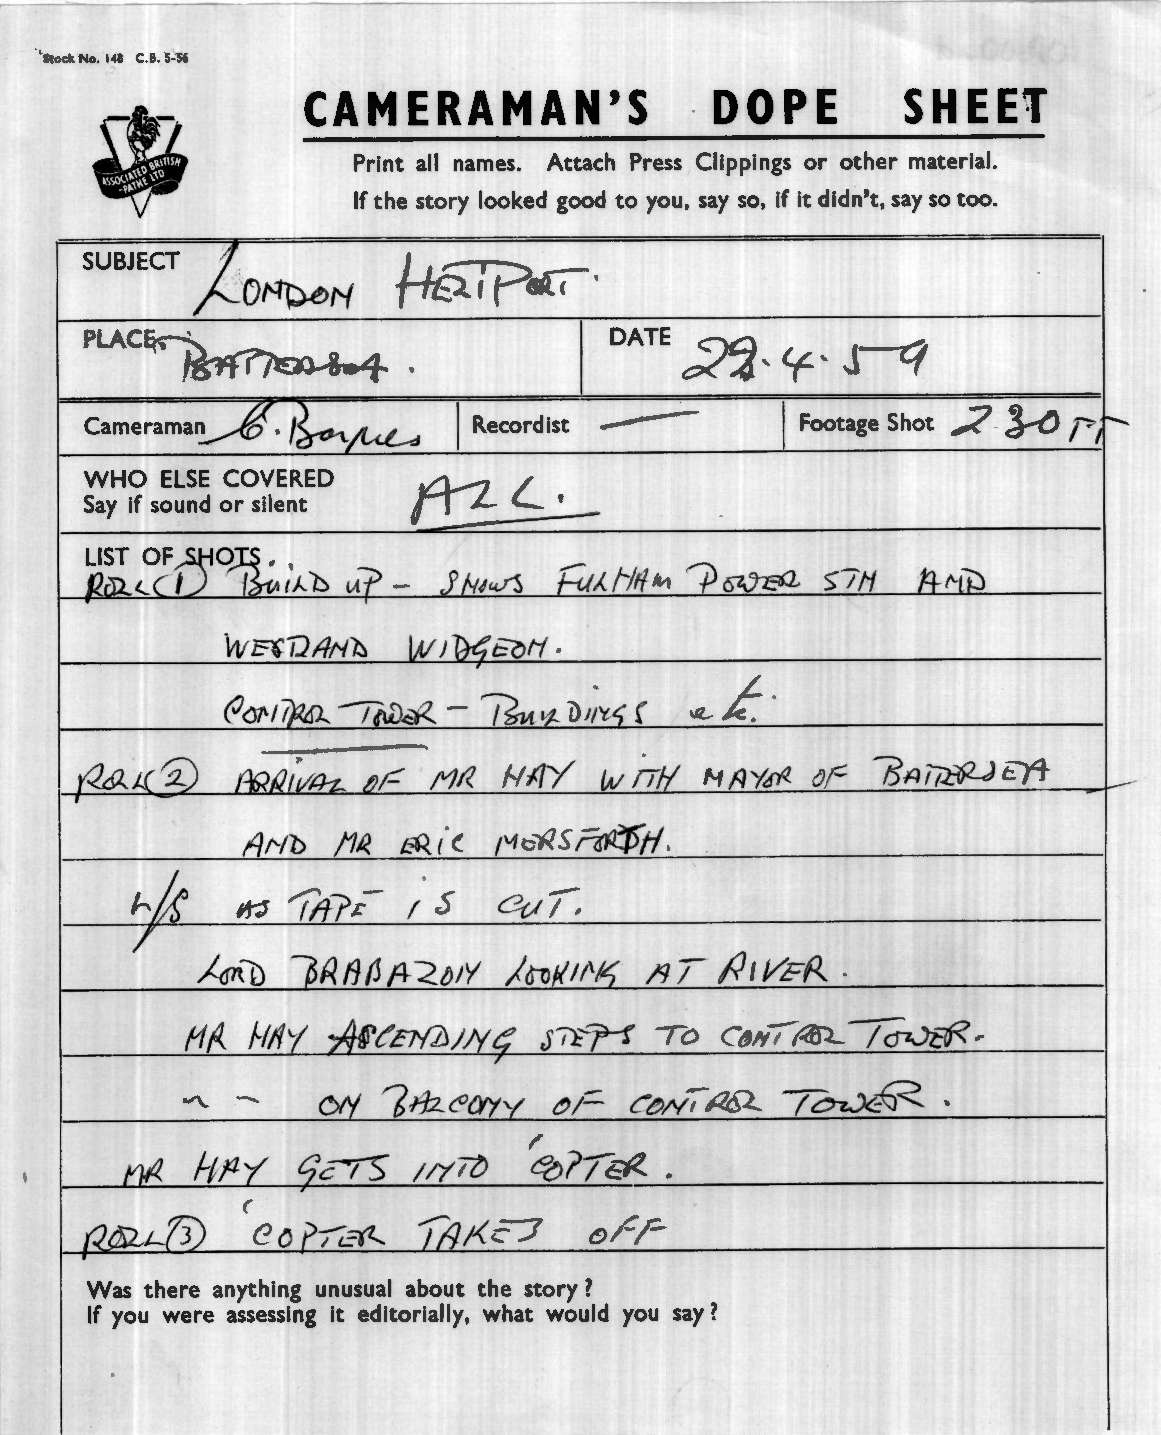 Stock No. 148 C.B. 5-56
CAMERAMAN'S DOPE SHEET
ASSOCIATED BRITISH
-PATHE LTD
Print all names. Attach Press Clippings or other material.
If the story looked good to you, say so, if it didn't, say so too.
SUBJECT LONDON HELIPORT.
PLACE BATTERSEA. DATE 22.4.59
Cameraman C. Barnes Recordist — Footage Shot 230 FT
WHO ELSE COVERED
Say if sound or silent ALL.
LIST OF SHOTS.
ROLL (1) BUILD UP - SHOWS FULHAM POWER STN AND
WESTLAND WIDGEON.
CONTROL TOWER - BUILDINGS etc.
ROLL (2) ARRIVAL OF MR HAY WITH MAYOR OF BATTERSEA
AND MR ERIC MERSFORTH.
L/S AS TAPE IS CUT.
LORD BRABAZON LOOKING AT RIVER.
MR HAY ASCENDING STEPS TO CONTROL TOWER.
" " ON BALCONY OF CONTROL TOWER.
MR HAY GETS INTO 'COPTER.
ROLL (3) 'COPTER TAKES OFF
Was there anything unusual about the story?
If you were assessing it editorially, what would you say?